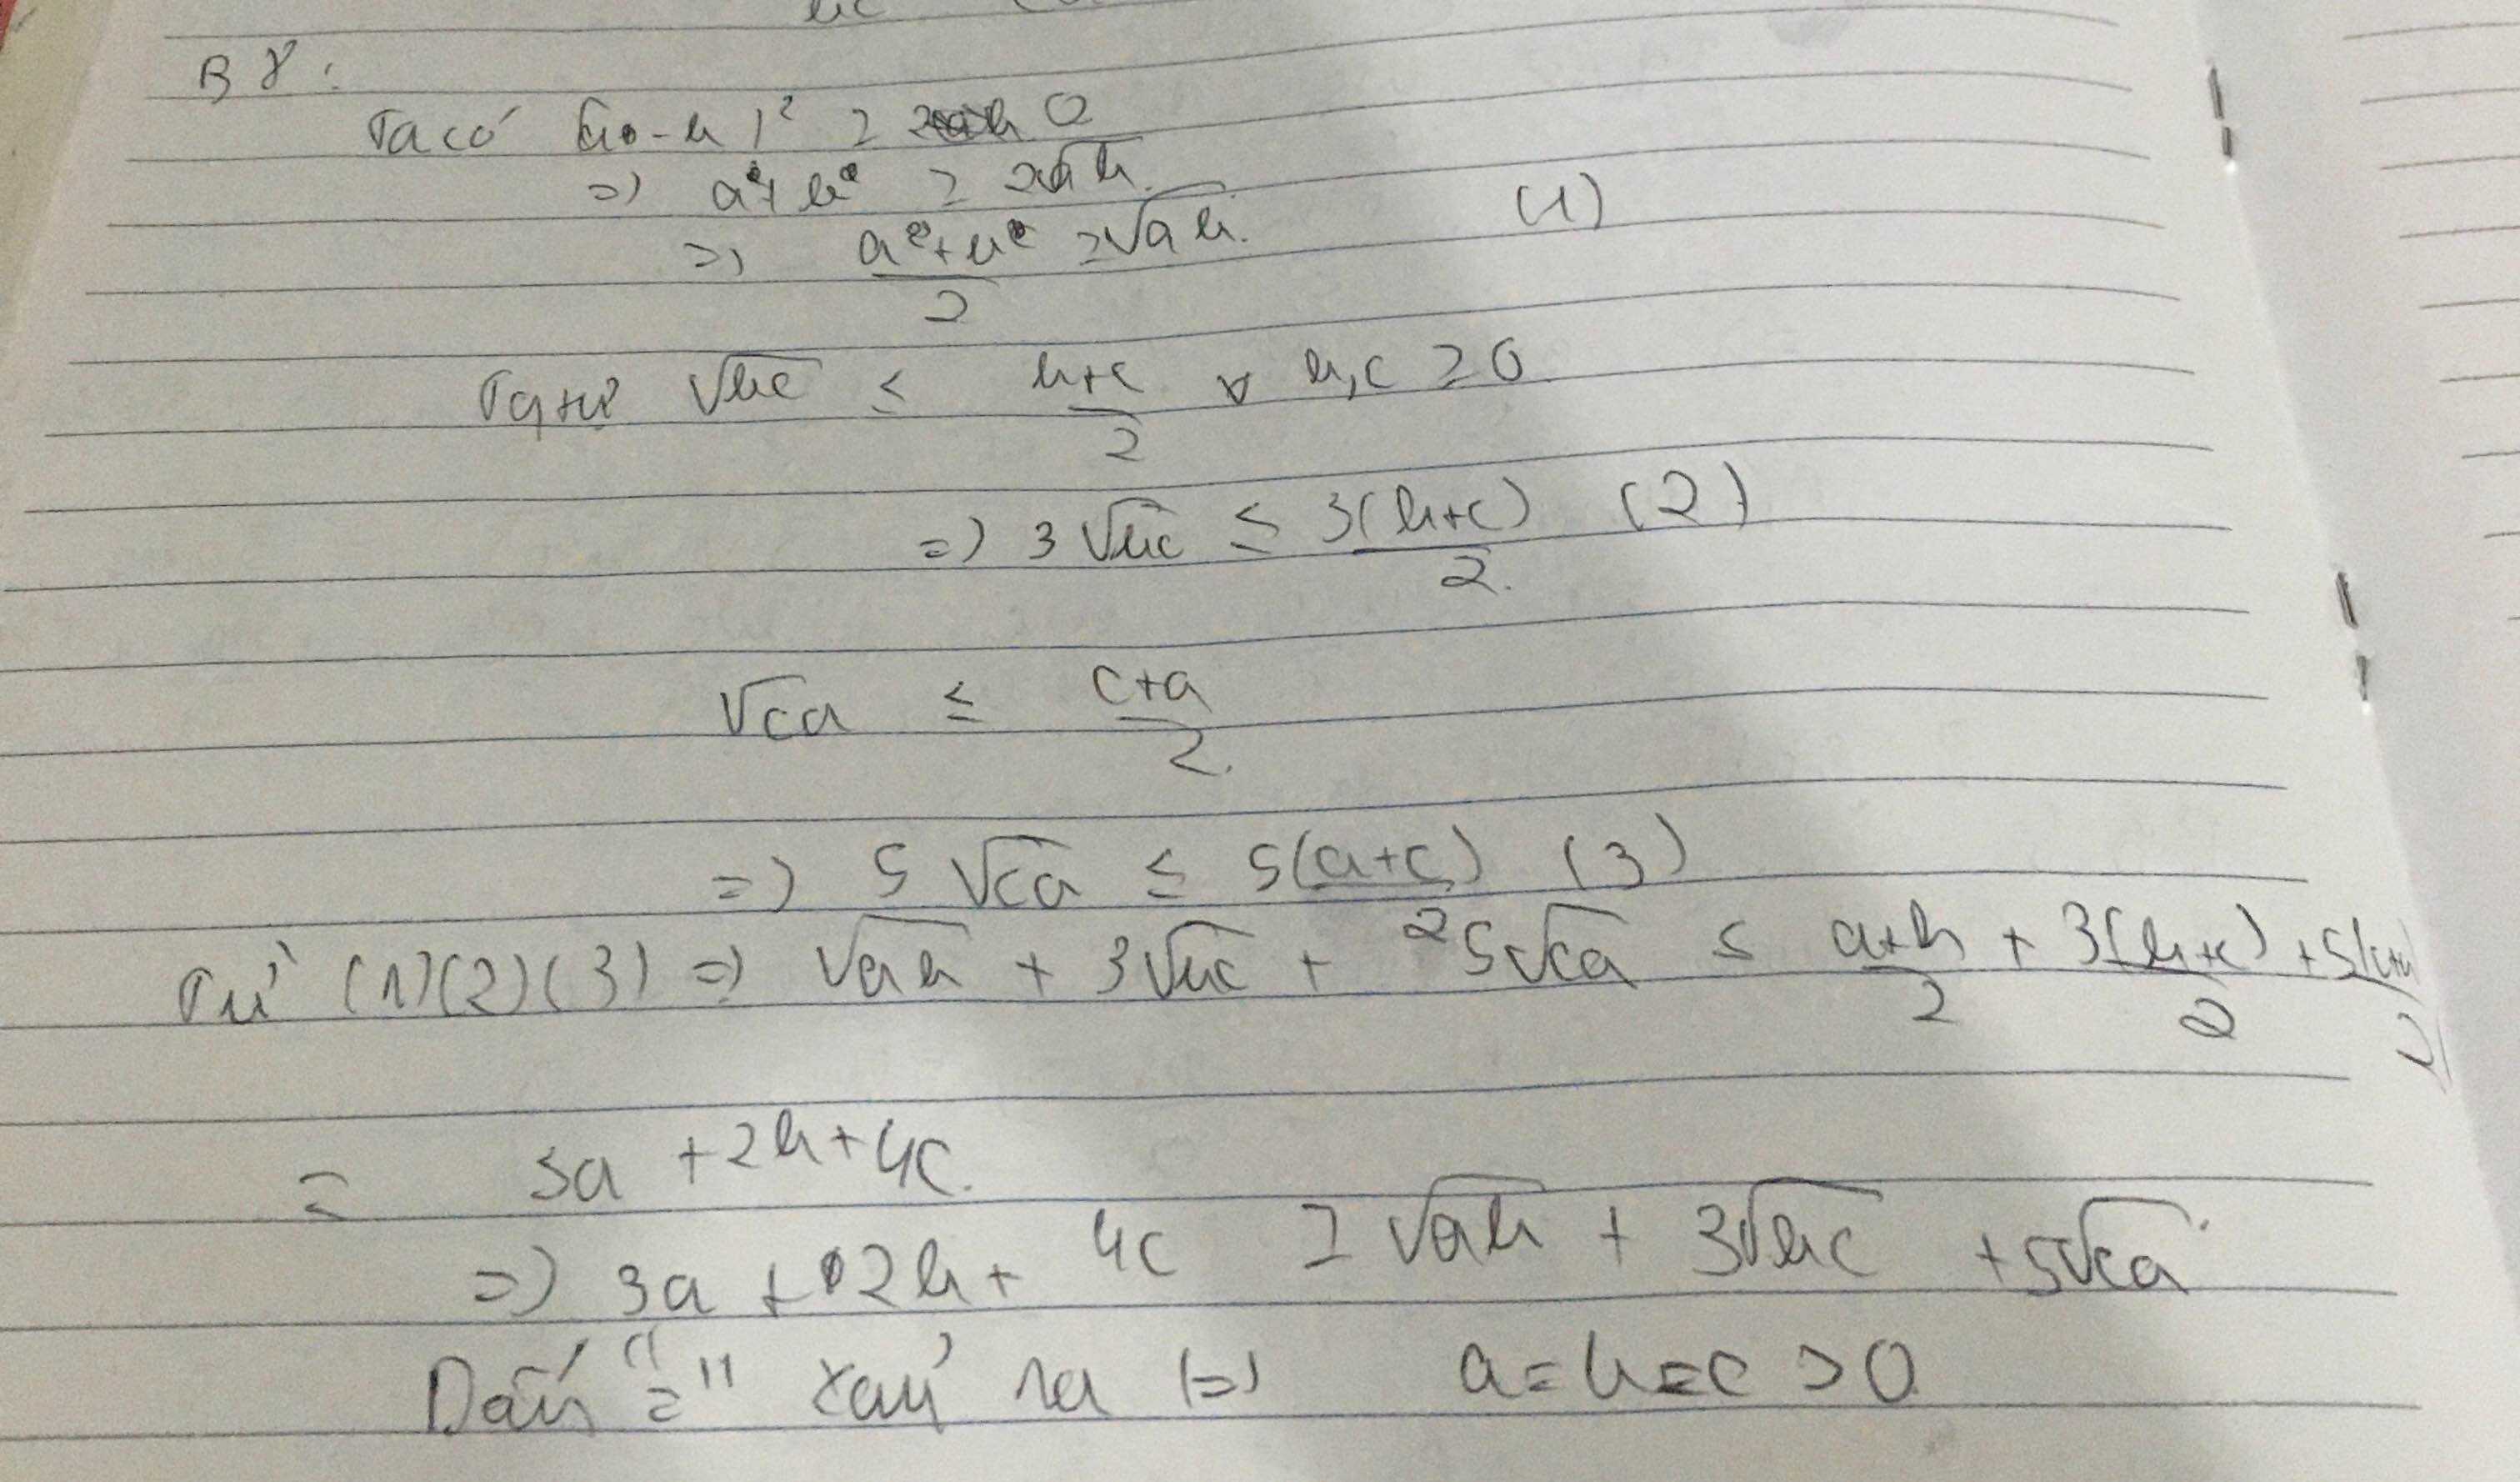 B8:
Ta có (a - b)² ≥ 0
=> a + b ≥ 2√ab.
=> a + b / 2 ≥ √ab. (1)
√bc ≤ b+c / 2 ∀ b,c ≥ 0
=> 3√bc ≤ 3(b+c) / 2. (2)
√ca ≤ c+a / 2.
=> 5√ca ≤ 5(a+c) / 2 (3)
Từ (1)(2)(3) => √ab + 3√bc + 5√ca ≤ a+b / 2 + 3(b+c) / 2 + 5(c+a) / 2
= 3a + 2b + 4c.
=> 3a + 2b + 4c ≥ √ab + 3√bc + 5√ca.
Dấu "=" xảy ra (=) a = b = c > 0